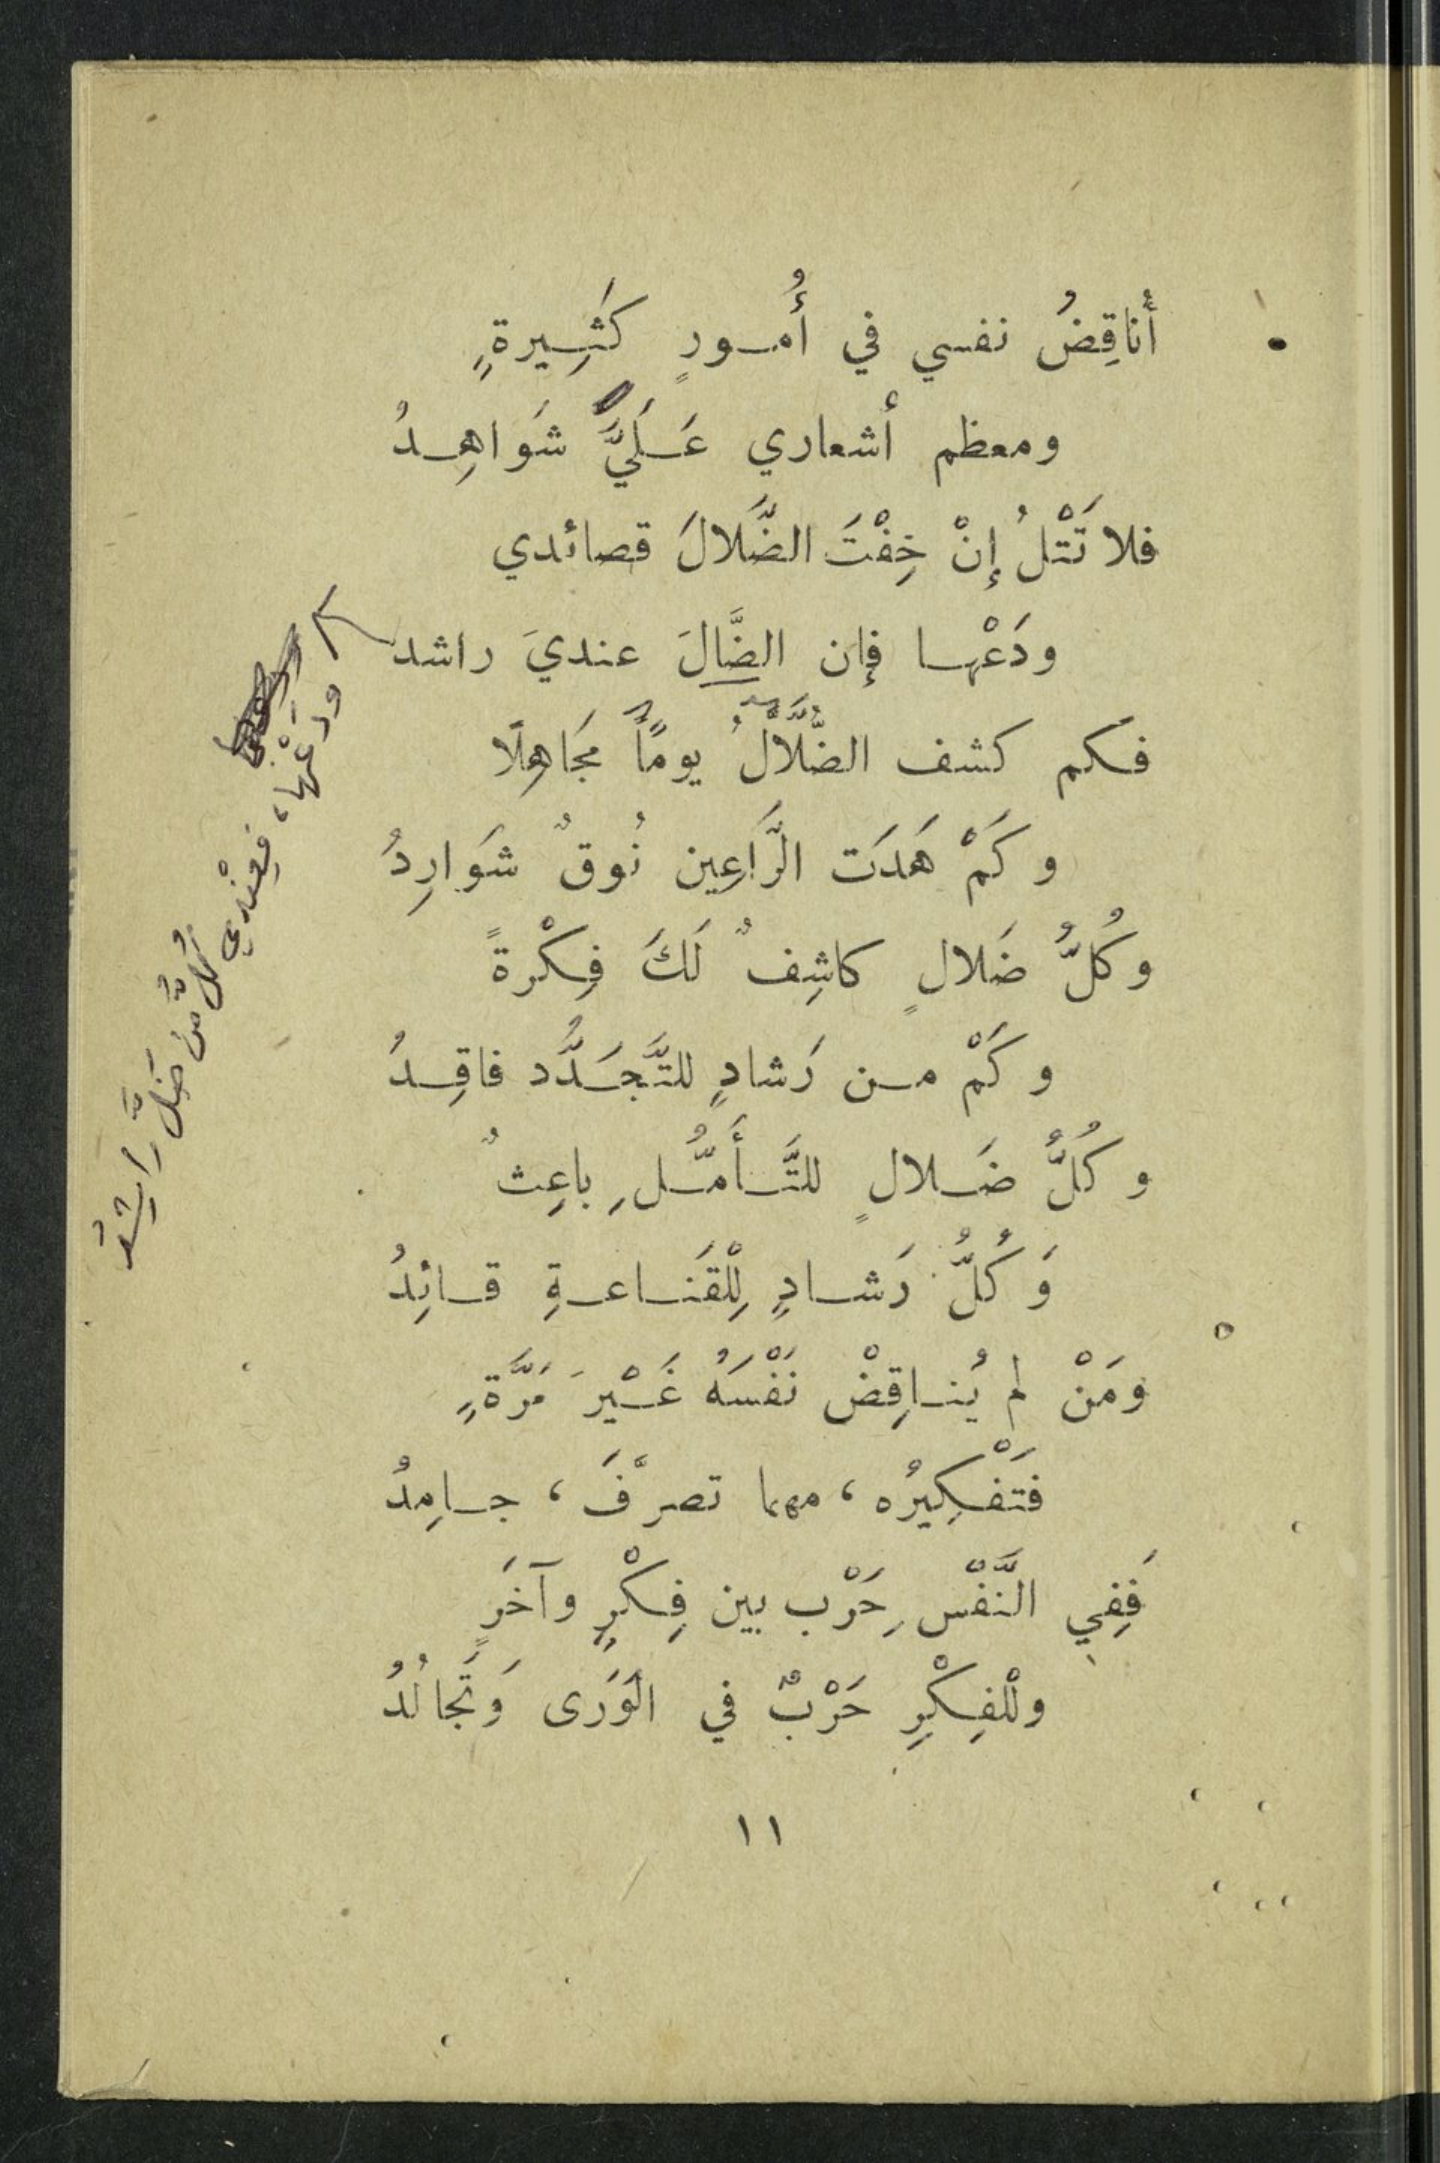 أُناقِضُ نفسي في أُمورٍ كَثِيرةٍ
ومعظم أشعاري عَلَيَّ شَواهِدُ
فلا تَتْلُ إنْ خِفْتَ الضَّلالَ قصائدي
ودَعْها فإن الضَّالَ عنديَ راشد
فكم كشف الضُّلَّالُ يوماً مَجَاهِلًا
وكَمْ هَدَت الرَّاعِين نُوقٌ شَوارِدُ
وكُلُّ ضَلالٍ كاشِفٌ لَكَ فِكْرةً
وكَمْ من رَشادٍ للتَّجَدُّد فاقِدُ
وكُلُّ ضَلالٍ للتَّأَمُّلِ باعِثٌ
وَكُلُّ رَشادٍ لِلْقَناعةِ قائِدُ
ومَنْ لم يُناقِضْ نَفْسَهُ غَيْرَ مَرَّةٍ
فَتَفْكِيرُه ، مهما تصرَّفَ ، جامِدُ
فَفِي النَّفْسِ حَرْب بين فِكْرٍ وآخَرٍ
ولْلفِكْرِ حَرْبٌ في الوَرَى وَتَجالُدُ
١١
ودَعْها، فعِنْدي كُلُّ مَن ضَلَّ راشِدُ